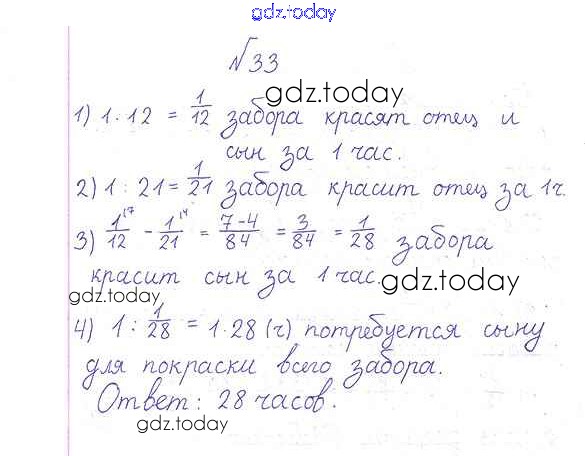 gdz.today
№33
gdz.today
1) 1·12 = 1/12 забора красят отец и
сын за 1 час.
2) 1 : 21 = 1/21 забора красит отец за 1ч.
3) 1/12 ¹⁷ - 1/21 ¹⁴ = 7-4/84 = 3/84 = 1/28 забора
красит сын за 1 час.
gdz.today
gdz.today
4) 1 : 1/28 = 1·28 (ч) потребуется сыну
для покраски всего забора.
Ответ: 28 часов.
gdz.today